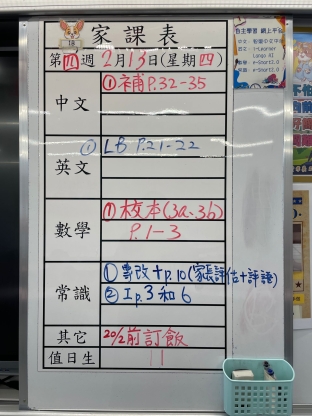 家課表
第四週 2月13日(星期四)
中文
①補 P.32-35
英文
① LB P.21-22
數學
①校本(3a、3b)
P.1-3
常識
①專改+p.10(家長評估+評語)
②I p.3 和 6
其它
20/2前訂飯
值日生
11
自主學習 網上平台